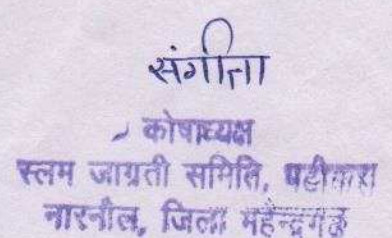 संगीता
कोषाध्यक्ष
स्लम जाग्रती समिति, पटीकरा
नारनौल, जिला महेन्द्रगढ़